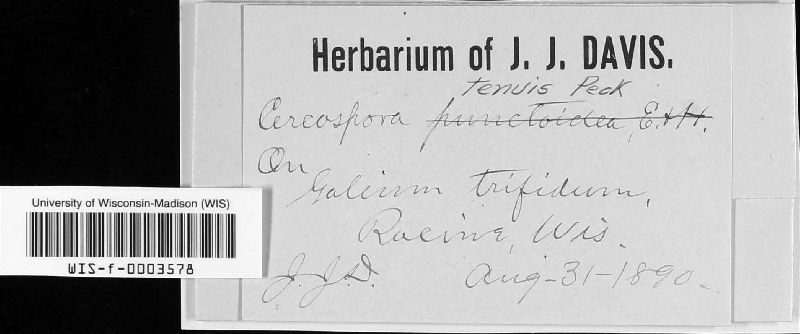 Herbarium of J. J. DAVIS.
tenuis Peck
Cercospora punctoidea, E. & H.
On
Galium trifidum,
Racine, Wis.
J. J. D. Aug-31-1890-
University of Wisconsin-Madison (WIS)
WIS-f-0003578